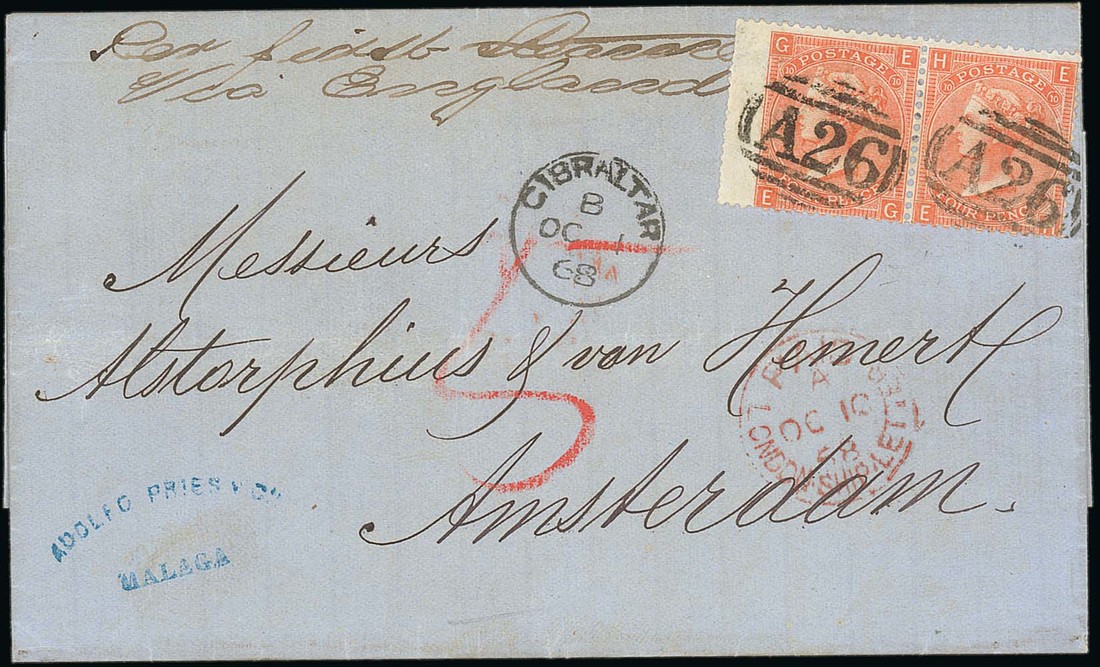 Per first Steamer
Via England
G POSTAGE E
10 10
E PENCE G
H POSTAGE E
10 10
E FOUR PENCE H
A26
A26
GIBRALTAR
B
OC 4
68
5
Messieurs
Alstorphius & van Hemert
Amsterdam.
PAID
A
OC 10
68
LONDON SHIP LETTER
ADOLFO PRIES Y Ca
MALAGA